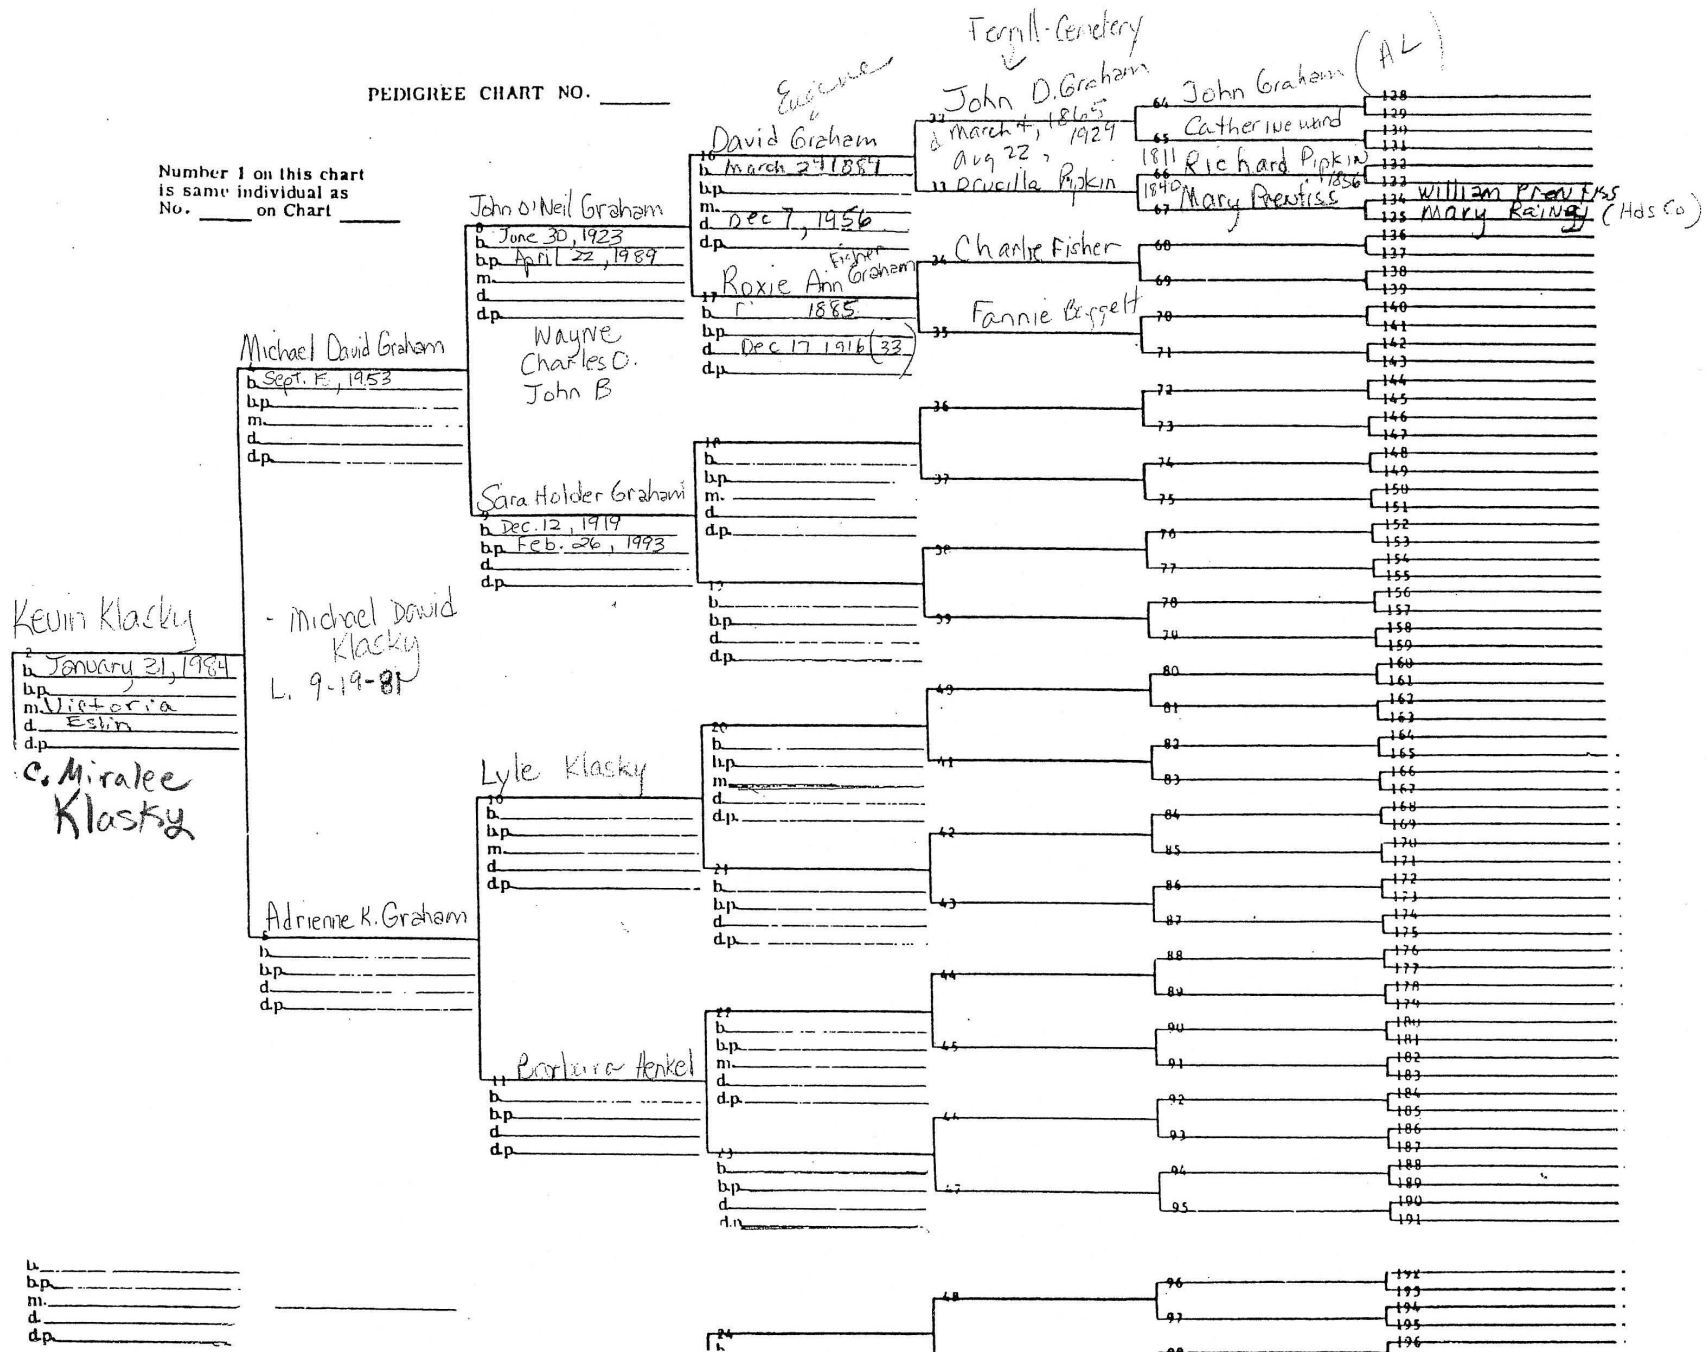 Terrill-Cemetery
(AL)
PEDIGREE CHART NO. ______
Number 1 on this chart
is same individual as
No. ______ on Chart ______
Kevin Klasky
2
b. January 21, 1984
b.p.
m. Victoria
d. Eslin
d.p.
C. Miralee
Klasky
- Michael David
Klasky
L. 9-19-81
Michael David Graham
4
b. Sept. 15, 1953
b.p.
m.
d.
d.p.
Adrienne K. Graham
5
b.
b.p.
d.
d.p.
John O'Neil Graham
8
b. June 30, 1923
b.p. April 22, 1989
m.
d.
d.p.
Wayne
Charles O.
John B
Sara Holder Graham
9
b. Dec. 12, 1919
b.p. Feb. 26, 1993
d.
d.p.
Lyle Klasky
10
b.
b.p.
m.
d.
d.p.
Barbara Henkel
11
b.
b.p.
d.
d.p.
Eugene
David Graham
16
b. March 24 1884
b.p.
m.
d. Dec 7, 1956
d.p.
Fisher
Roxie Ann Graham
17
b. 1885
b.p.
d. Dec 17 1916 (33)
d.p.
18
b.
b.p.
m.
d.
d.p.
19
b.
b.p.
d.
d.p.
20
b.
b.p.
m.
d.
d.p.
21
b.
b.p.
d.
d.p.
22
b.
b.p.
m.
d.
d.p.
23
b.
b.p.
d.
d.p.
John D. Graham
32
March 4, 1865
d Aug 22, 1929
33 Drucilla Pipkin
34 Charlie Fisher
35 Fannie Baggett
36
37
38
39
40
41
42
43
44
45
46
47
64 John Graham
65 Catherine Ward
1811 66 Richard Pipkin
1856
1840 67 Mary Prentiss
68
69
70
71
72
73
74
75
76
77
78
79
80
81
82
83
84
85
86
87
88
89
90
91
92
93
94
95
128
129
130
131
132
133
134 William Prentiss
135 Mary Rainey (Hds Co)
136
137
138
139
140
141
142
143
144
145
146
147
148
149
150
151
152
153
154
155
156
157
158
159
160
161
162
163
164
165
166
167
168
169
170
171
172
173
174
175
176
177
178
179
180
181
182
183
184
185
186
187
188
189
190
191
b.
b.p.
m.
d.
d.p.
24
b.
48
96
97
98
192
193
194
195
196